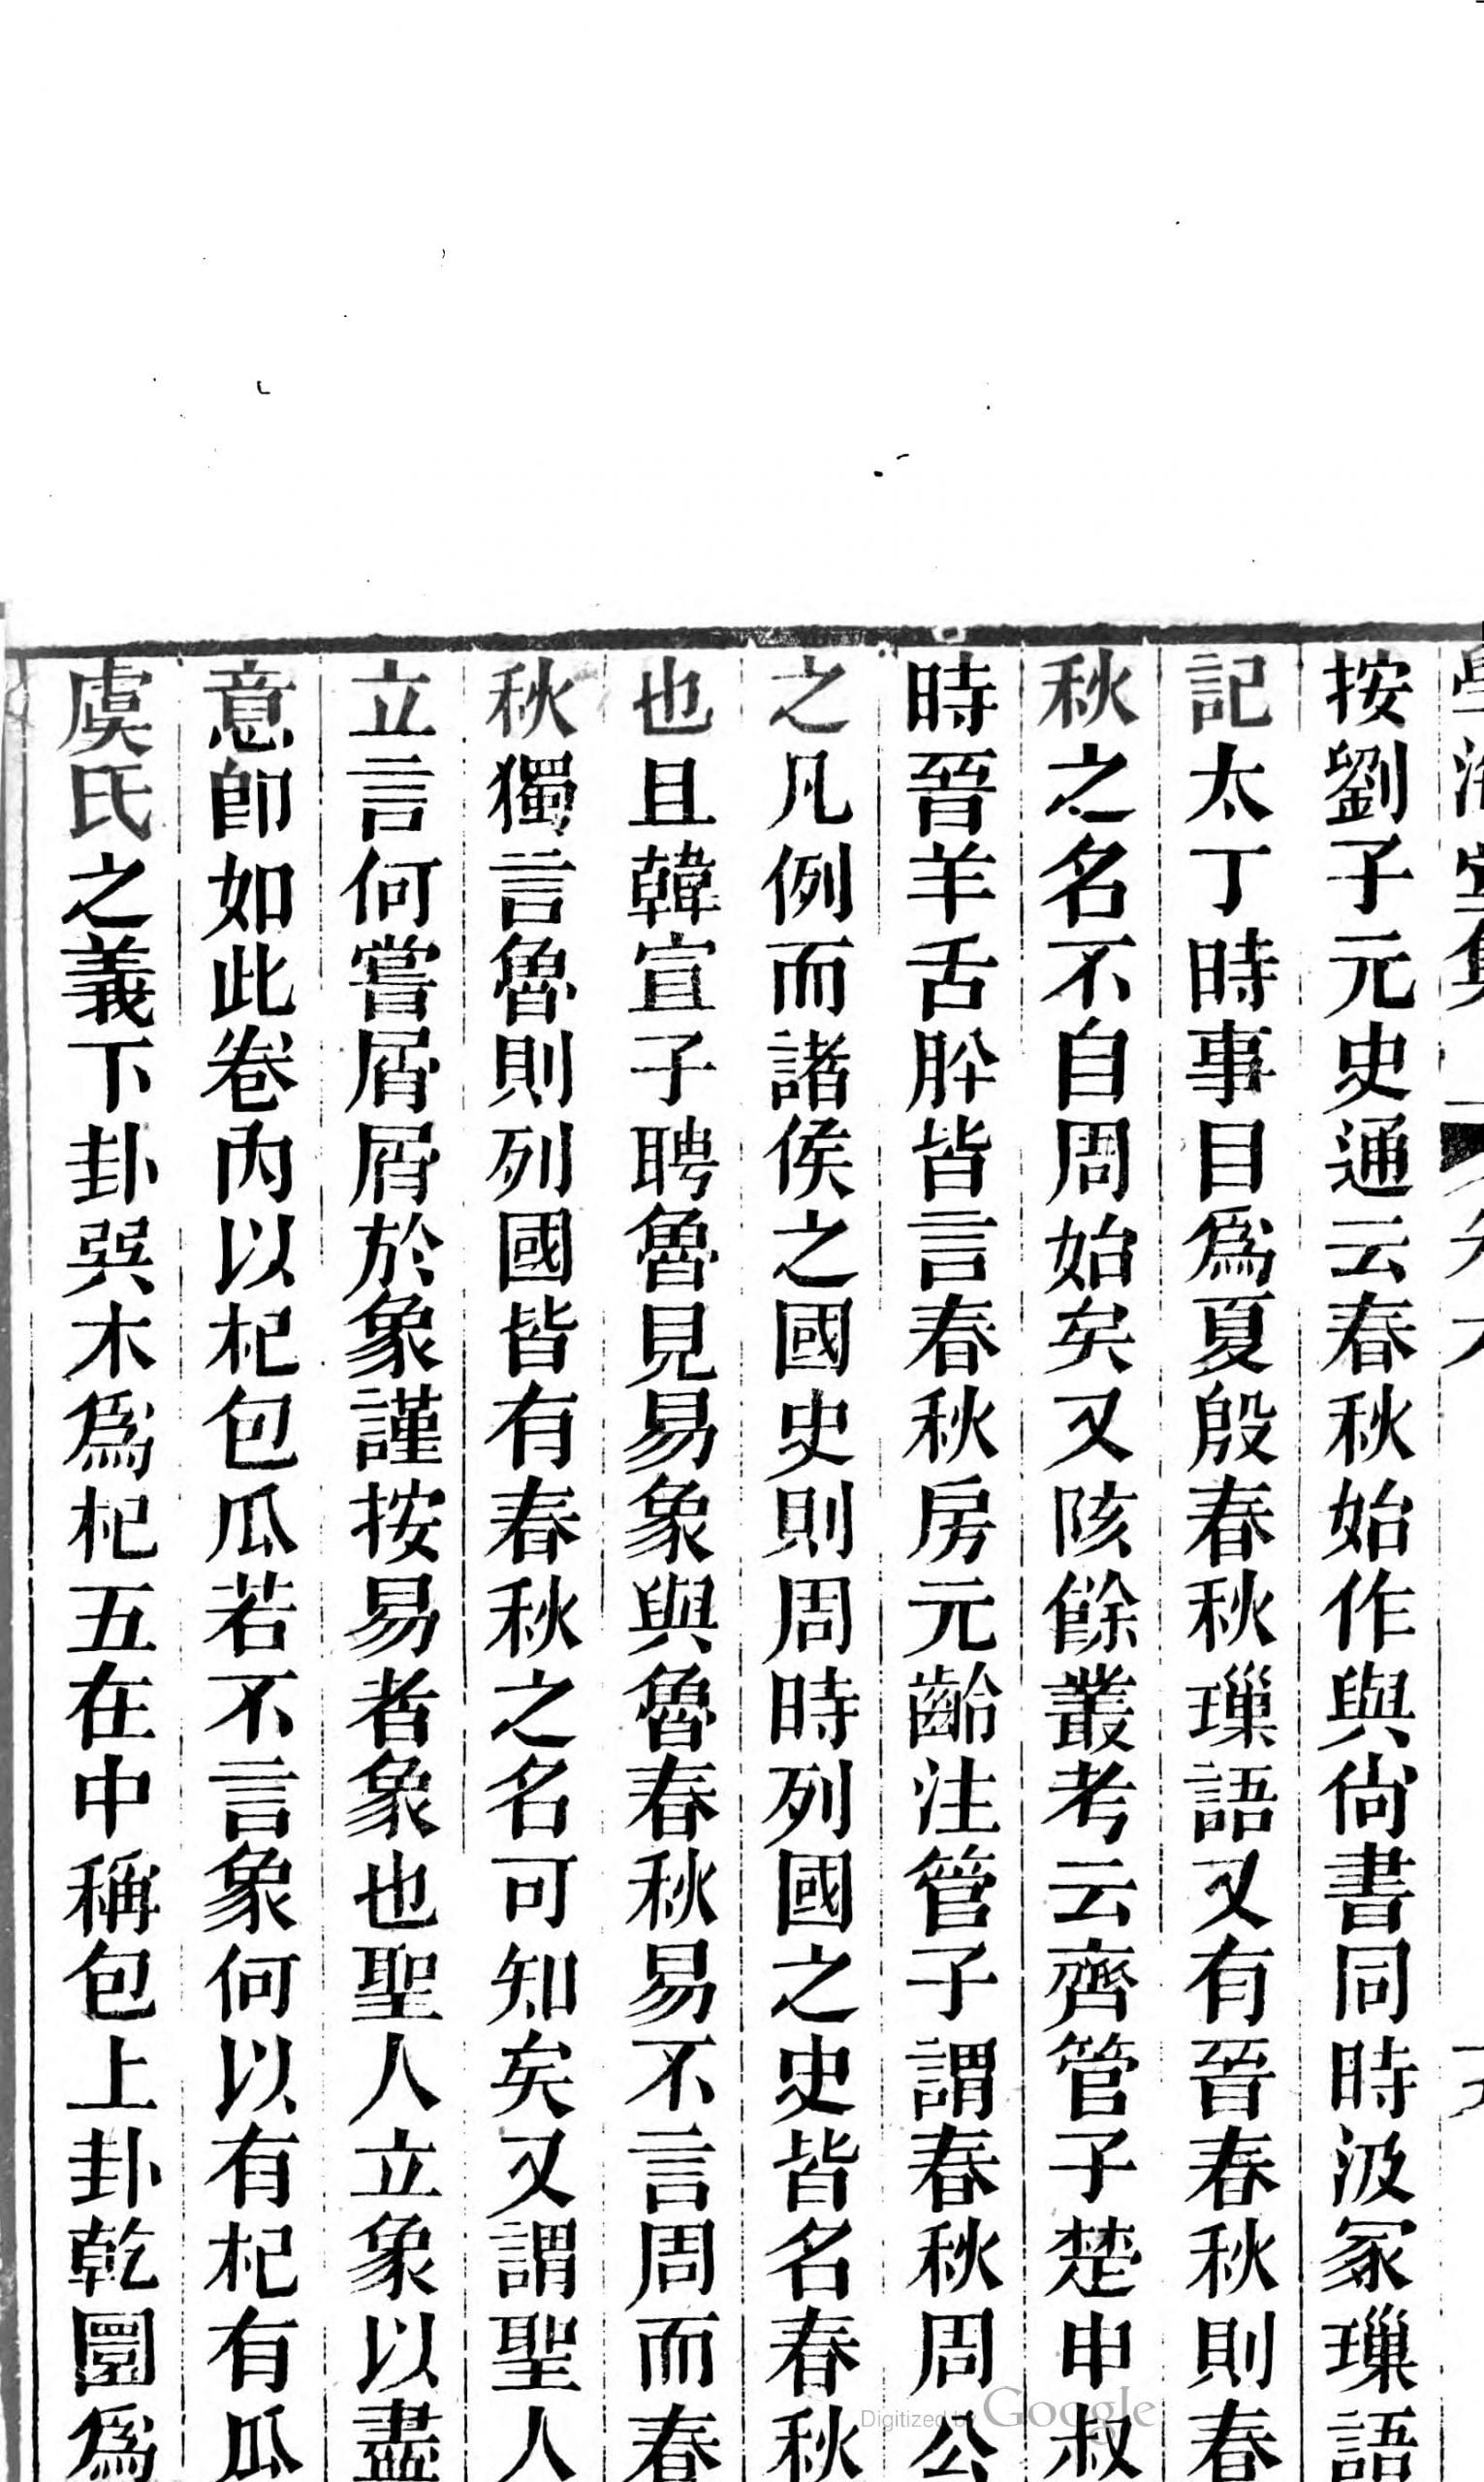 按劉子元史通云春秋始作與尙書同時汲冢璅語
記太丁時事目爲夏殷春秋璅語又有晉春秋則春
秋之名不自周始矣又陔餘叢考云齊管子楚申叔
時晉羊舌肸皆言春秋房元齡注管子謂春秋周公
之凡例而諸侯之國史則周時列國之史皆名春秋
也且韓宣子聘魯見易象與魯春秋易不言周而春
秋獨言魯則列國皆有春秋之名可知矣又謂聖人
立言何嘗屑屑於象謹按易者象也聖人立象以盡
意卽如此卷內以杞包瓜若不言象何以有杞有瓜
虞氏之義下卦巽木爲杞五在中稱包上卦乾圜爲
Digitized by Google